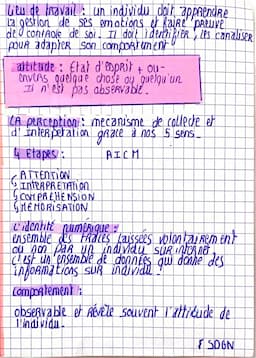 Lieu de travail : un individu doit apprendre
la gestion de ses emotions et faire preuve
de controle de soi. Il doit identifier, les canaliser
pour adapter son comportement
attitude : Etat d'esprit + ou -
envers quelque chose ou quelqu'un
Il n'est pas observable.
LA perception : mecanisme de collecte et
d'interpetation grace à nos 5 sens.
4 Etapes : AICM
ATTENTION
INTERPRETATION
COMPREHENSION
MEMORISATION
L'identité numerique :
ensemble des traces laissées volontairement
ou non par un individu sur internet.
c'est un ensemble de données qui donne des
informations sur individu
comportement :
observable et Révèle souvent l'attitude de
l'individu.